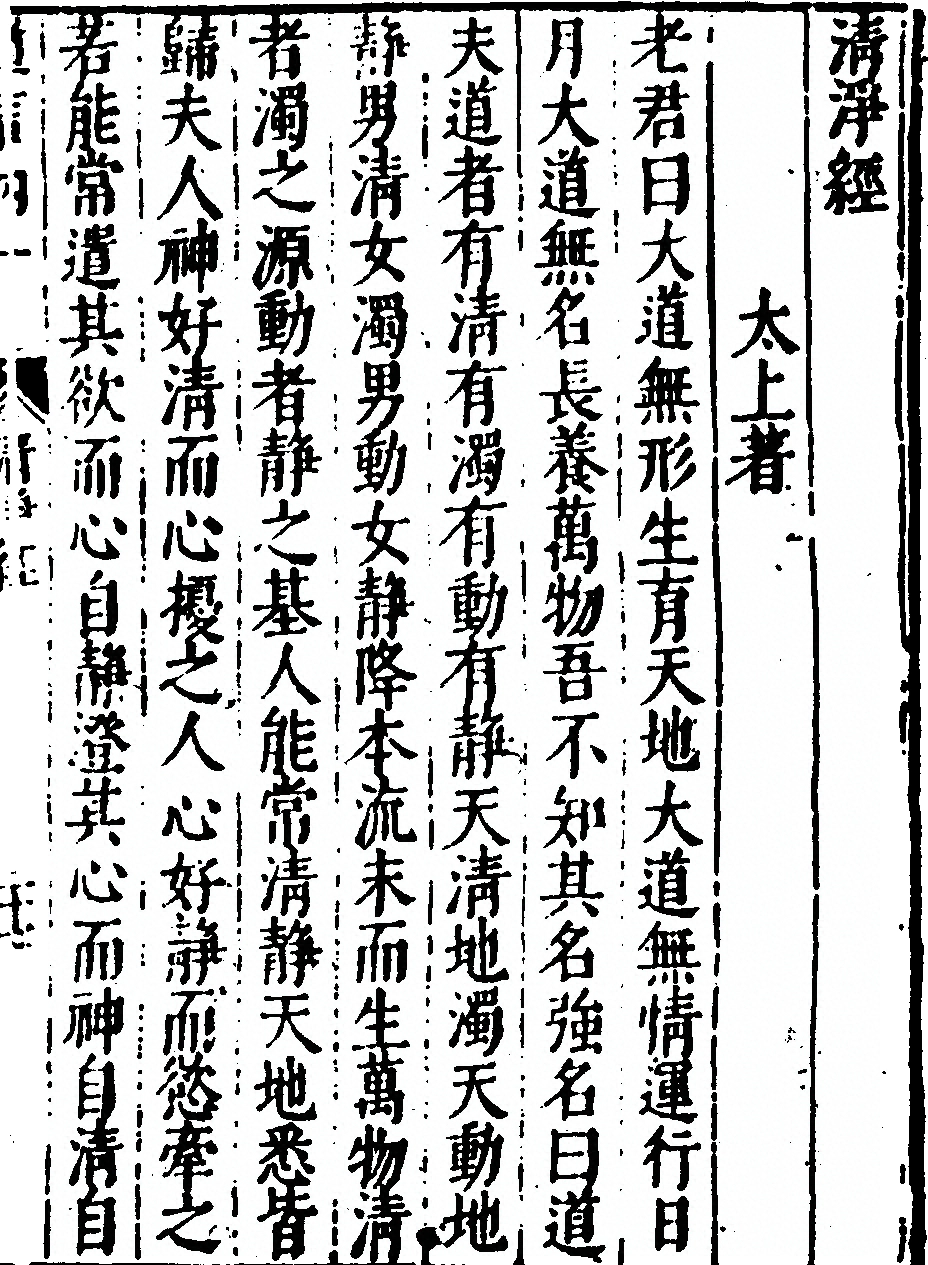 清淨經
太上著
老君曰大道無形生育天地大道無情運行日
月大道無名長養萬物吾不知其名強名曰道
夫道者有清有濁有動有静天清地濁天動地
静男清女濁男動女静降本流末而生萬物清
者濁之源動者静之基人能常清静天地悉皆
歸夫人神好清而心擾之人心好静而慾牽之
若能常遣其欲而心自静澄其心而神自清自